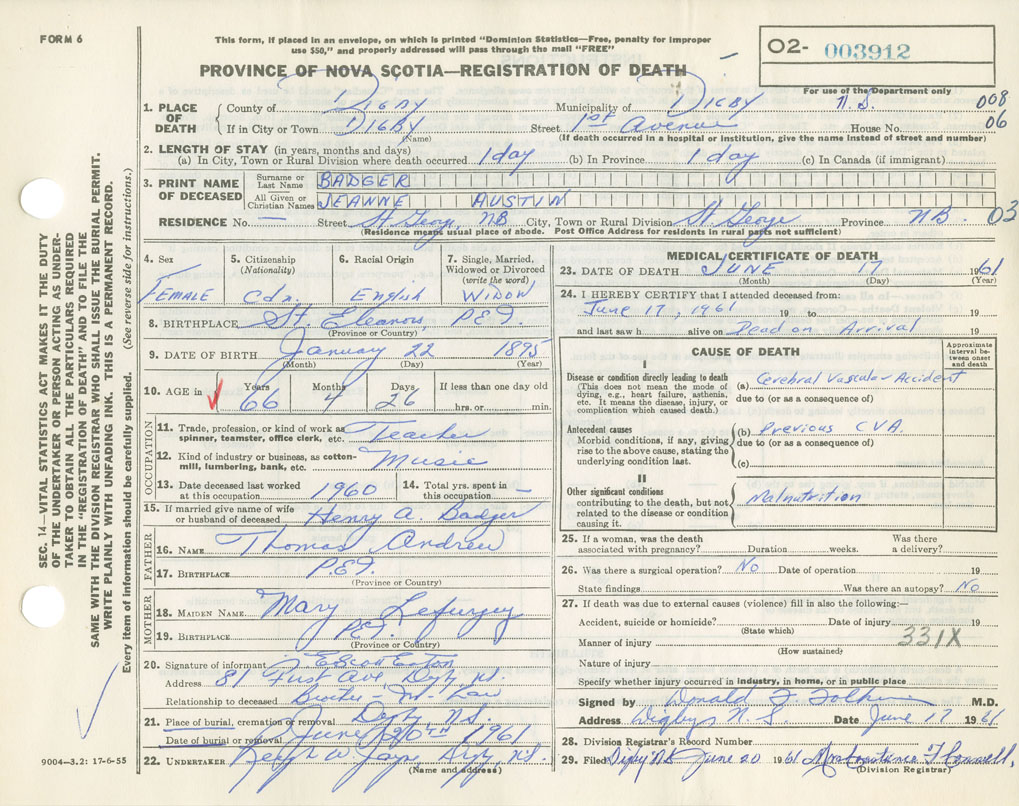 FORM 6
This form, if placed in an envelope, on which is printed "Dominion Statistics—Free, penalty for improper
use $50," and properly addressed will pass through the mail "FREE"
O2- 003912
For use of the Department only
PROVINCE OF NOVA SCOTIA—REGISTRATION OF DEATH
N.S. 008
06
1. PLACE OF DEATH
County of DIGBY Municipality of DIGBY
If in City or Town DIGBY Street 1st Avenue House No.
(Name) (If death occurred in a hospital or institution, give the name instead of street and number)
2. LENGTH OF STAY (in years, months and days)
(a) In City, Town or Rural Division where death occurred 1 day (b) In Province 1 day (c) In Canada (if immigrant)
3. PRINT NAME OF DECEASED
Surname or Last Name BADGER
All Given or Christian Names JEANNE AUSTIN
RESIDENCE No. — Street St. George, NB City, Town or Rural Division St. George Province N.B. 03
(Residence means usual place of abode. Post Office Address for residents in rural parts not sufficient)
4. Sex
FEMALE
5. Citizenship
(Nationality)
Cdn.
6. Racial Origin
English
7. Single, Married,
Widowed or Divorced
(write the word)
WIDOW
8. BIRTHPLACE St. Eleanors, P.E.I.
(Province or Country)
9. DATE OF BIRTH January 22 1895
(Month) (Day) (Year)
10. AGE in Years Months Days If less than one day old
66 4 26 hrs. or min.
OCCUPATION
11. Trade, profession, or kind of work as
spinner, teamster, office clerk, etc. Teacher
12. Kind of industry or business, as cotton-
mill, lumbering, bank, etc. Music
13. Date deceased last worked
at this occupation 1960
14. Total yrs. spent in
this occupation —
15. If married give name of wife
or husband of deceased Henry A. Badger
FATHER
16. NAME Thomas Andrew
17. BIRTHPLACE P.E.I.
(Province or Country)
MOTHER
18. MAIDEN NAME Mary Lefurgey
19. BIRTHPLACE P.E.I.
(Province or Country)
20. Signature of informant Eaton
Address 81 First Ave, Digby, N.S.
Relationship to deceased Brother-in-Law
21. Place of burial, cremation or removal Digby, N.S.
Date of burial or removal June 20TH 1961
22. UNDERTAKER Ralph W. Digby, N.S.
(Name and address)
MEDICAL CERTIFICATE OF DEATH
23. DATE OF DEATH JUNE 17 1961
(Month) (Day) (Year)
24. I HEREBY CERTIFY that I attended deceased from:
June 17, 1961 19 to 19
and last saw h alive on Dead on Arrival 19
CAUSE OF DEATH
Approximate
interval be-
tween onset
and death
I
Disease or condition directly leading to death
(This does not mean the mode of
dying, e.g., heart failure, asthenia,
etc. It means the disease, injury, or
complication which caused death.)
(a) Cerebral Vascular Accident
due to (or as a consequence of)
Antecedent causes
Morbid conditions, if any, giving
rise to the above cause, stating the
underlying condition last.
(b) Previous C.V.A.
due to (or as a consequence of)
(c)
II
Other significant conditions
contributing to the death, but not
related to the disease or condition
causing it.
Malnutrition
25. If a woman, was the death
associated with pregnancy? Duration weeks. Was there
a delivery?
26. Was there a surgical operation? No Date of operation 19
State findings Was there an autopsy? No
27. If death was due to external causes (violence) fill in also the following:—
Accident, suicide or homicide? Date of injury 19
(State which)
331X
Manner of injury
(How sustained)
Nature of injury
Specify whether injury occurred in industry, in home, or in public place
Signed by Donald F. M.D.
Address Digby N.S. Date June 17 1961
28. Division Registrar's Record Number
29. Filed Digby N.S. June 20 1961
(Division Registrar)
SEC. 14—VITAL STATISTICS ACT MAKES IT THE DUTY
OF THE UNDERTAKER OR PERSON ACTING AS UNDER-
TAKER TO OBTAIN ALL THE PARTICULARS REQUIRED
IN THE "REGISTRATION OF DEATH" AND TO FILE THE
SAME WITH THE DIVISION REGISTRAR WHO SHALL ISSUE THE BURIAL PERMIT.
WRITE PLAINLY WITH UNFADING INK. THIS IS A PERMANENT RECORD.
Every item of information should be carefully supplied. (See reverse side for instructions.)
9004—3.2: 17-6-55